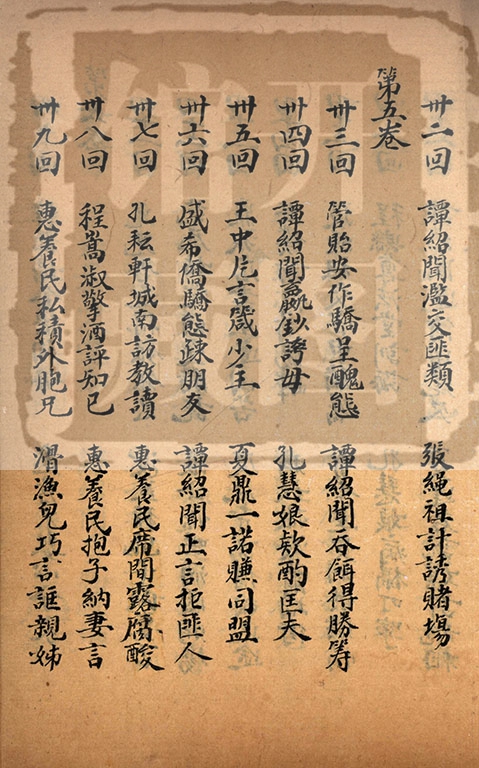 卅二回 譚紹聞濫交匪類 張繩祖計誘賭場
第五卷
卅三回 管貽安作驕呈醜態 譚紹聞吞餌得勝籌
卅四回 譚紹聞贏鈔誇母 孔慧娘款酌匡夫
卅五回 王中片言箴少主 夏鼎一諾賺同盟
卅六回 盛希僑驕態疎朋友 譚紹聞正言拒匪人
卅七回 孔耘軒城南訪教讀 惠養民席間露腐酸
卅八回 程嵩淑擎酒評知己 惠養民抱子納妻言
卅九回 惠養民私積外胞兄 滑漁兒巧言誆親姊